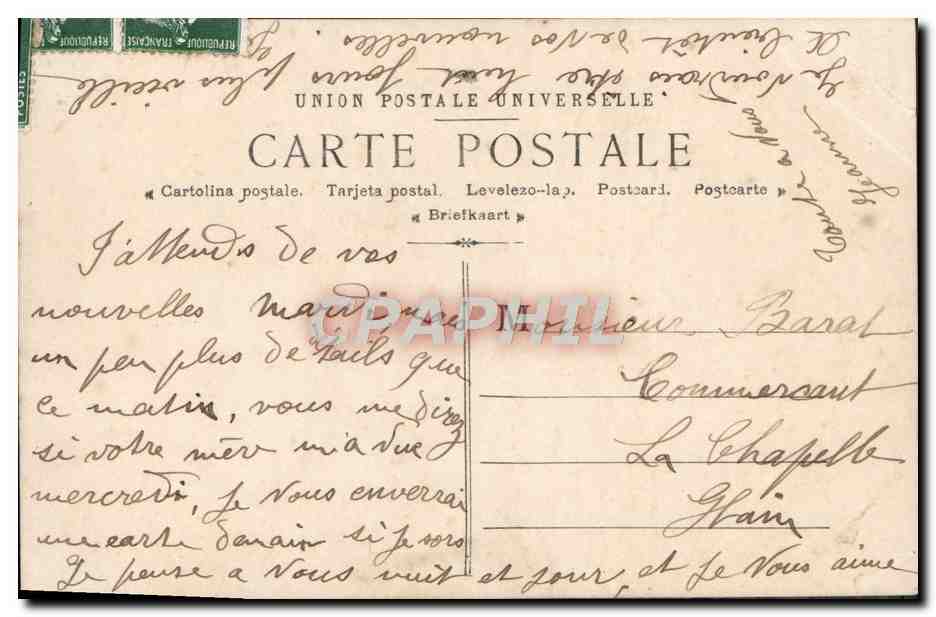 POSTES
RÉPUBLIQUE FRANÇAISE
RÉPUBLIQUE F
UNION POSTALE UNIVERSELLE
CARTE POSTALE
Cartolina postale. Tarjeta postal. Levelezo-lap. Postcard. Postcarte
Briefkaart
J'attends de vos
nouvelles mardi, mais
un peu plus détails que
ce matin, vous me direz
si votre mère m'a vue
mercredi, je vous enverrai
une carte demain si je sors
Je pense a vous nuit et jour, et je vous aime
Je voudrais etre huit jours plus vieille
A bientot de vos nouvelles.
Toute a vous
Jeanne
Monsieur Barat
Commercant
La Chapelle
Glain
CPAPHIL